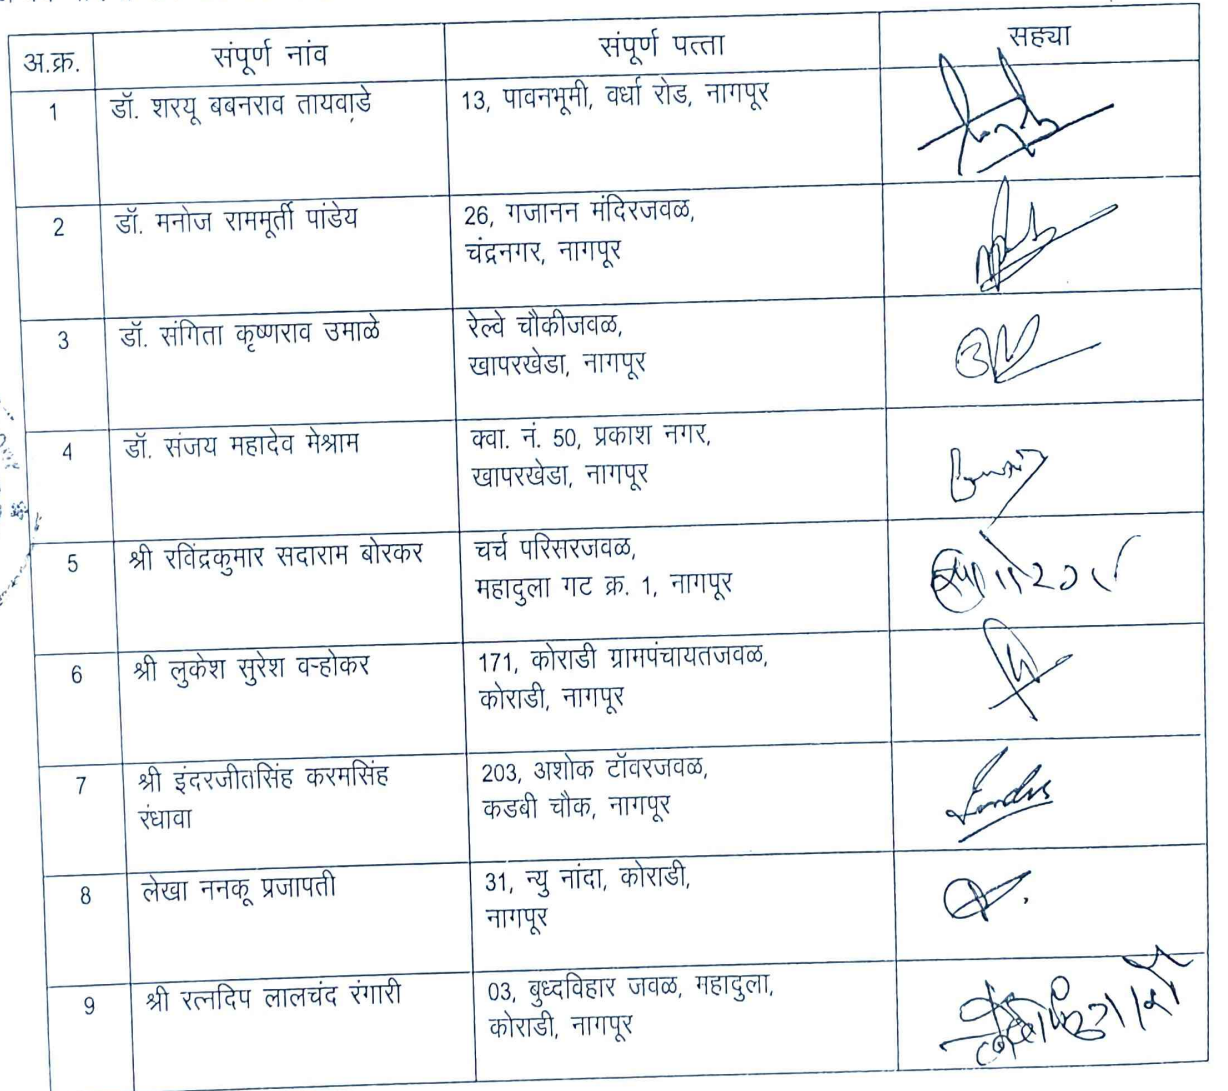 अ.क्र. संपूर्ण नांव संपूर्ण पत्ता सह्या
1 डॉ. शरयू बबनराव तायवाडे 13, पावनभूमी, वर्धा रोड, नागपूर
2 डॉ. मनोज राममूर्ती पांडेय 26, गजानन मंदिरजवळ,
चंद्रनगर, नागपूर
3 डॉ. संगिता कृष्णराव उमाळे रेल्वे चौकीजवळ,
खापरखेडा, नागपूर
4 डॉ. संजय महादेव मेश्राम क्वा. नं. 50, प्रकाश नगर,
खापरखेडा, नागपूर
5 श्री रविंद्रकुमार सदाराम बोरकर चर्च परिसरजवळ,
महादुला गट क्र. 1, नागपूर
6 श्री लुकेश सुरेश वऱ्होकर 171, कोराडी ग्रामपंचायतजवळ,
कोराडी, नागपूर
7 श्री इंदरजीतसिंह करमसिंह 203, अशोक टॉवरजवळ,
रंधावा कडबी चौक, नागपूर
8 लेखा ननकू प्रजापती 31, न्यु नांदा, कोराडी,
नागपूर
9 श्री रत्नदिप लालचंद रंगारी 03, बुध्दविहार जवळ, महादुला,
कोराडी, नागपूर